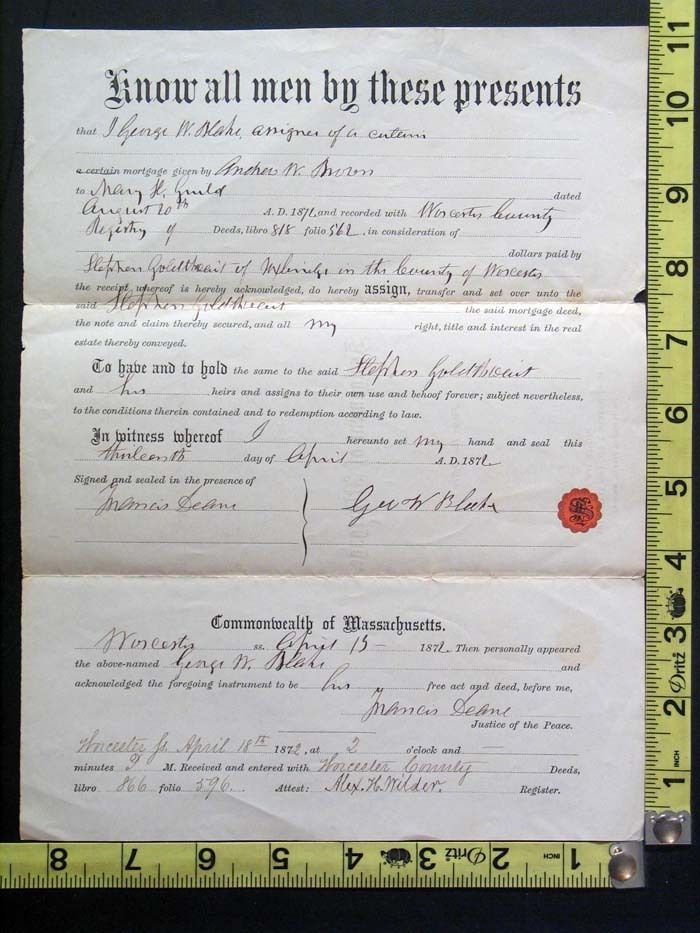 Know all men by these presents
that I George W. Blake, assignee of a certain
a certain mortgage given by Andrew W. Brown
to Mary H. Guild dated
August 20th A. D. 1871, and recorded with Worcester County
Registry of Deeds, libro 818 folio 562, in consideration of
dollars paid by
Stephen Goldthwait of Uxbridge in the County of Worcester
the receipt whereof is hereby acknowledged, do hereby assign, transfer and set over unto the
said Stephen Goldthwait the said mortgage deed,
the note and claim thereby secured, and all my right, title and interest in the real
estate thereby conveyed.
To have and to hold the same to the said Stephen Goldthwait
and his heirs and assigns to their own use and behoof forever; subject nevertheless,
to the conditions therein contained and to redemption according to law.
In witness whereof I hereunto set my hand and seal this
thirteenth day of April A. D. 1872
Signed and sealed in the presence of
Francis Deane Geo W Blake
Commonwealth of Massachusetts.
Worcester ss. April 13 - 1872. Then personally appeared
the above-named George W. Blake and
acknowledged the foregoing instrument to be his free act and deed, before me,
Francis Deane
Justice of the Peace.
Worcester Ss. April 18th 1872, at 2 o'clock and —
minutes P M. Received and entered with Worcester County Deeds,
libro 866 folio 596. Attest: Alex. H. Wilder. Register.
11
10
9
8
7
6
5
4
3
Dritz
2
INCH
1
8
7
6
5
4
3
Dritz
2
INCH
1